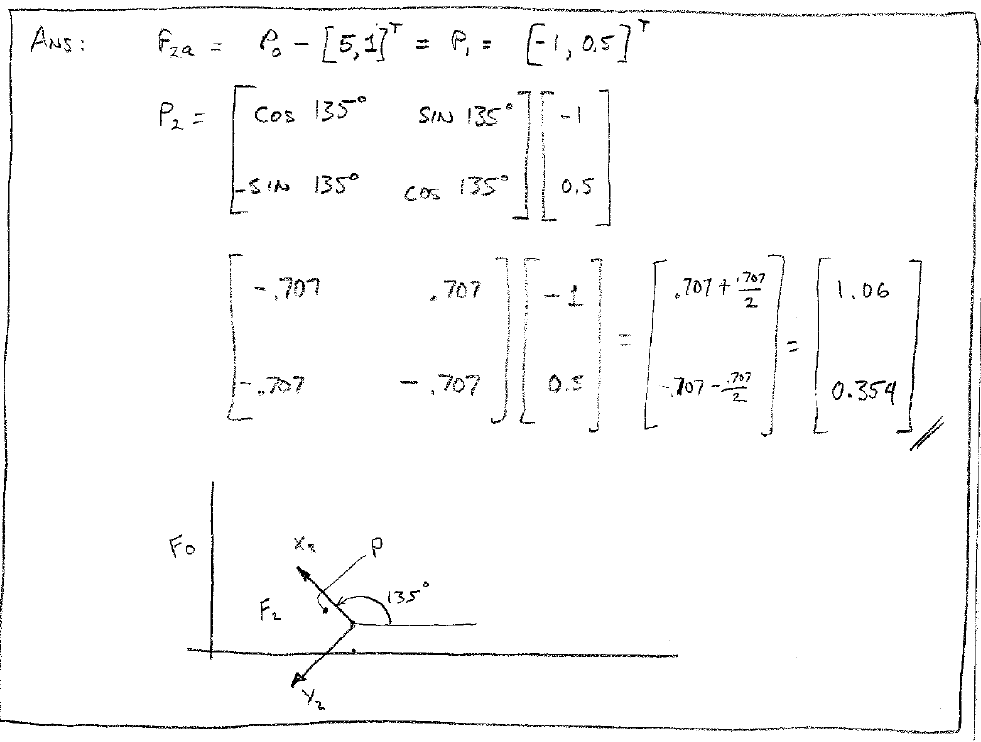 ANS: F₂ₐ = P₀ - [5,1]ᵀ = P₁ = [-1, 0.5]ᵀ
P₂ = [cos 135° SIN 135°] [-1]
[-SIN 135° cos 135°] [0.5]
[-.707 .707] [-1] = [.707 + .707/2] = [1.06]
[-.707 -.707] [0.5] [.707 - .707/2] [0.354]
F₀
X₂
P
135°
F₂
Y₂